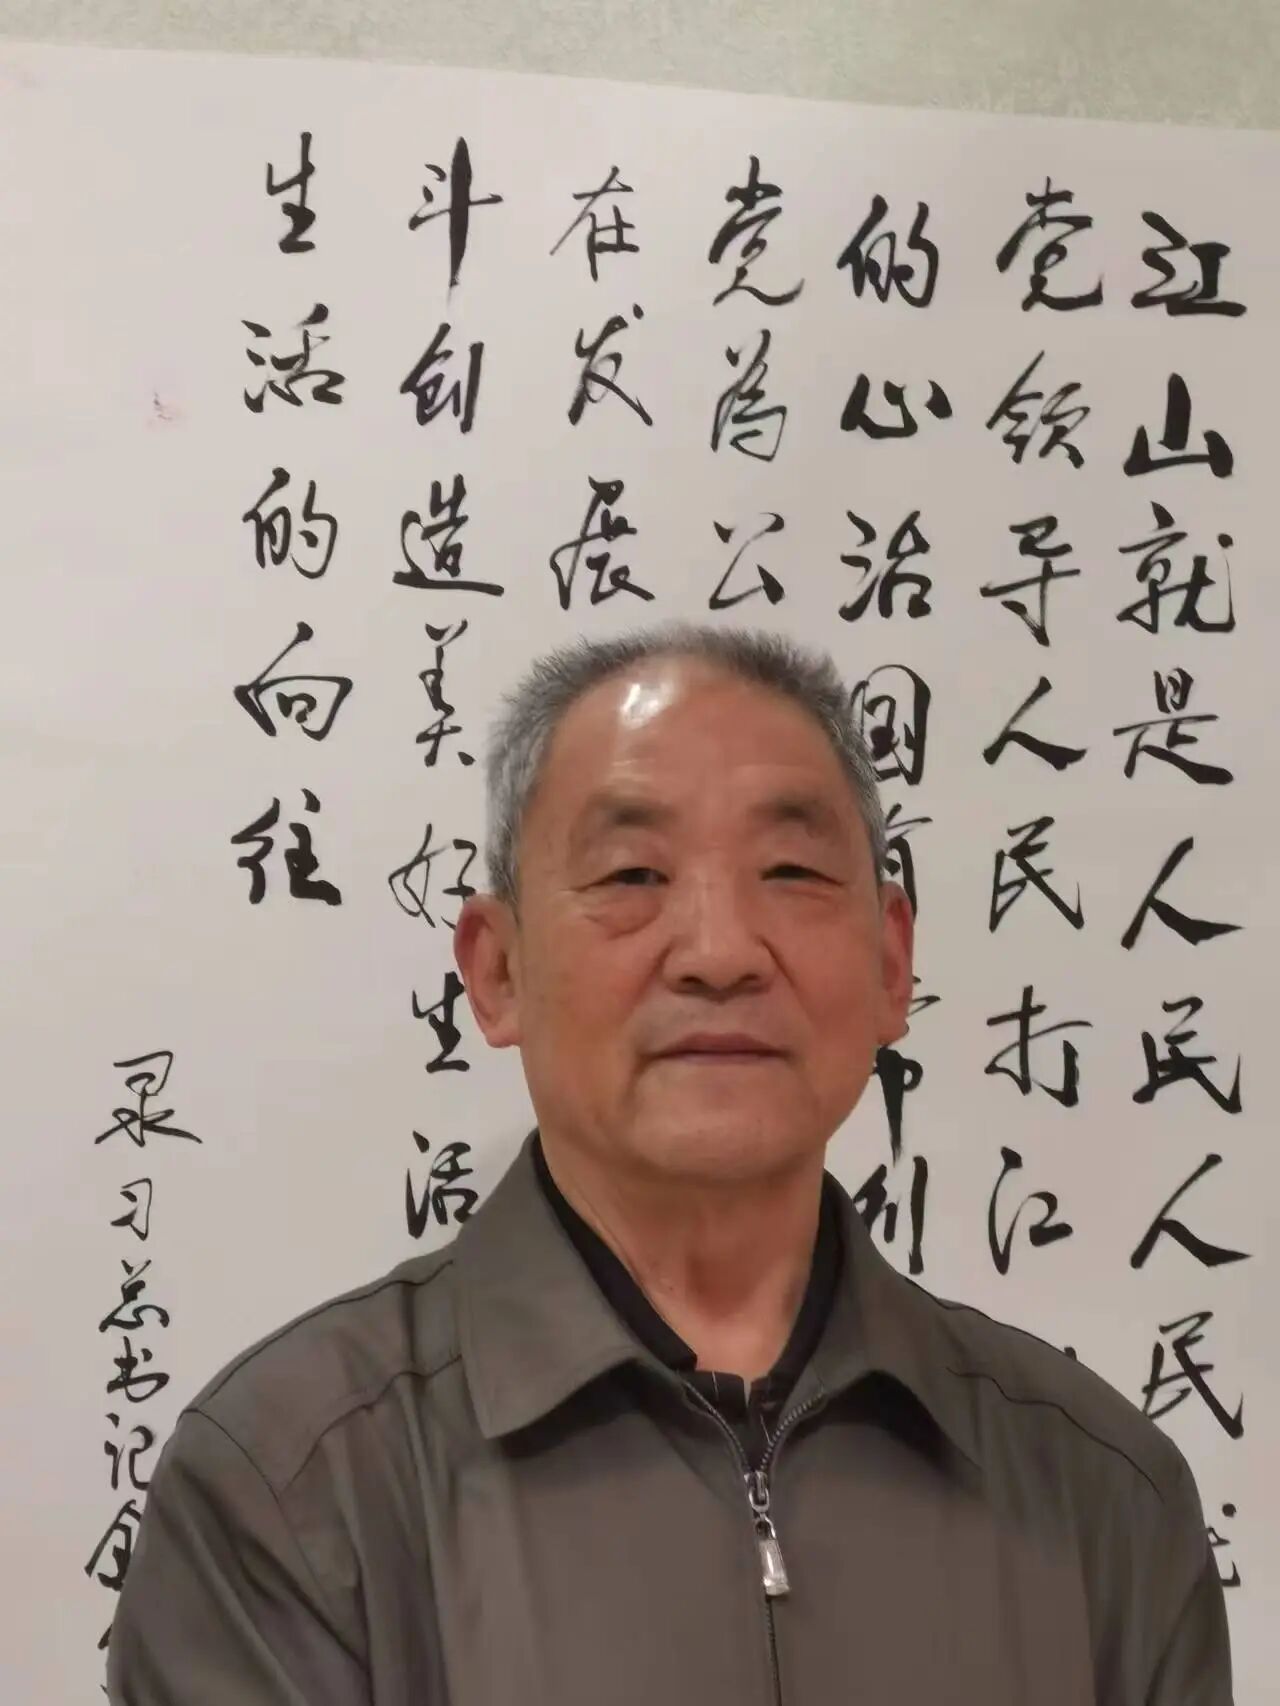 江山就是人民人民
党领导人民打江
的心治国有常利
党为公
在发展
斗创造美好生活
生活的向往
录习总书记